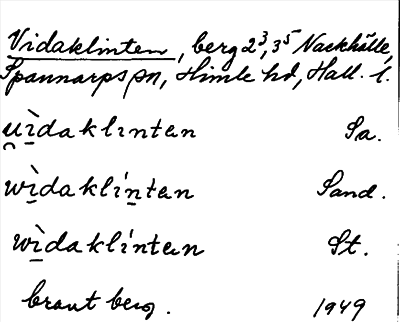 Vidaklinten, berg 2³, 3⁵ Nackhälle,
Spannarps sn, Himle hd, Hall. l.
u̯ìdaklıntan Sa.
wìdaklíntan Sand.
wìdaklíntan St.
brant berg. 1949